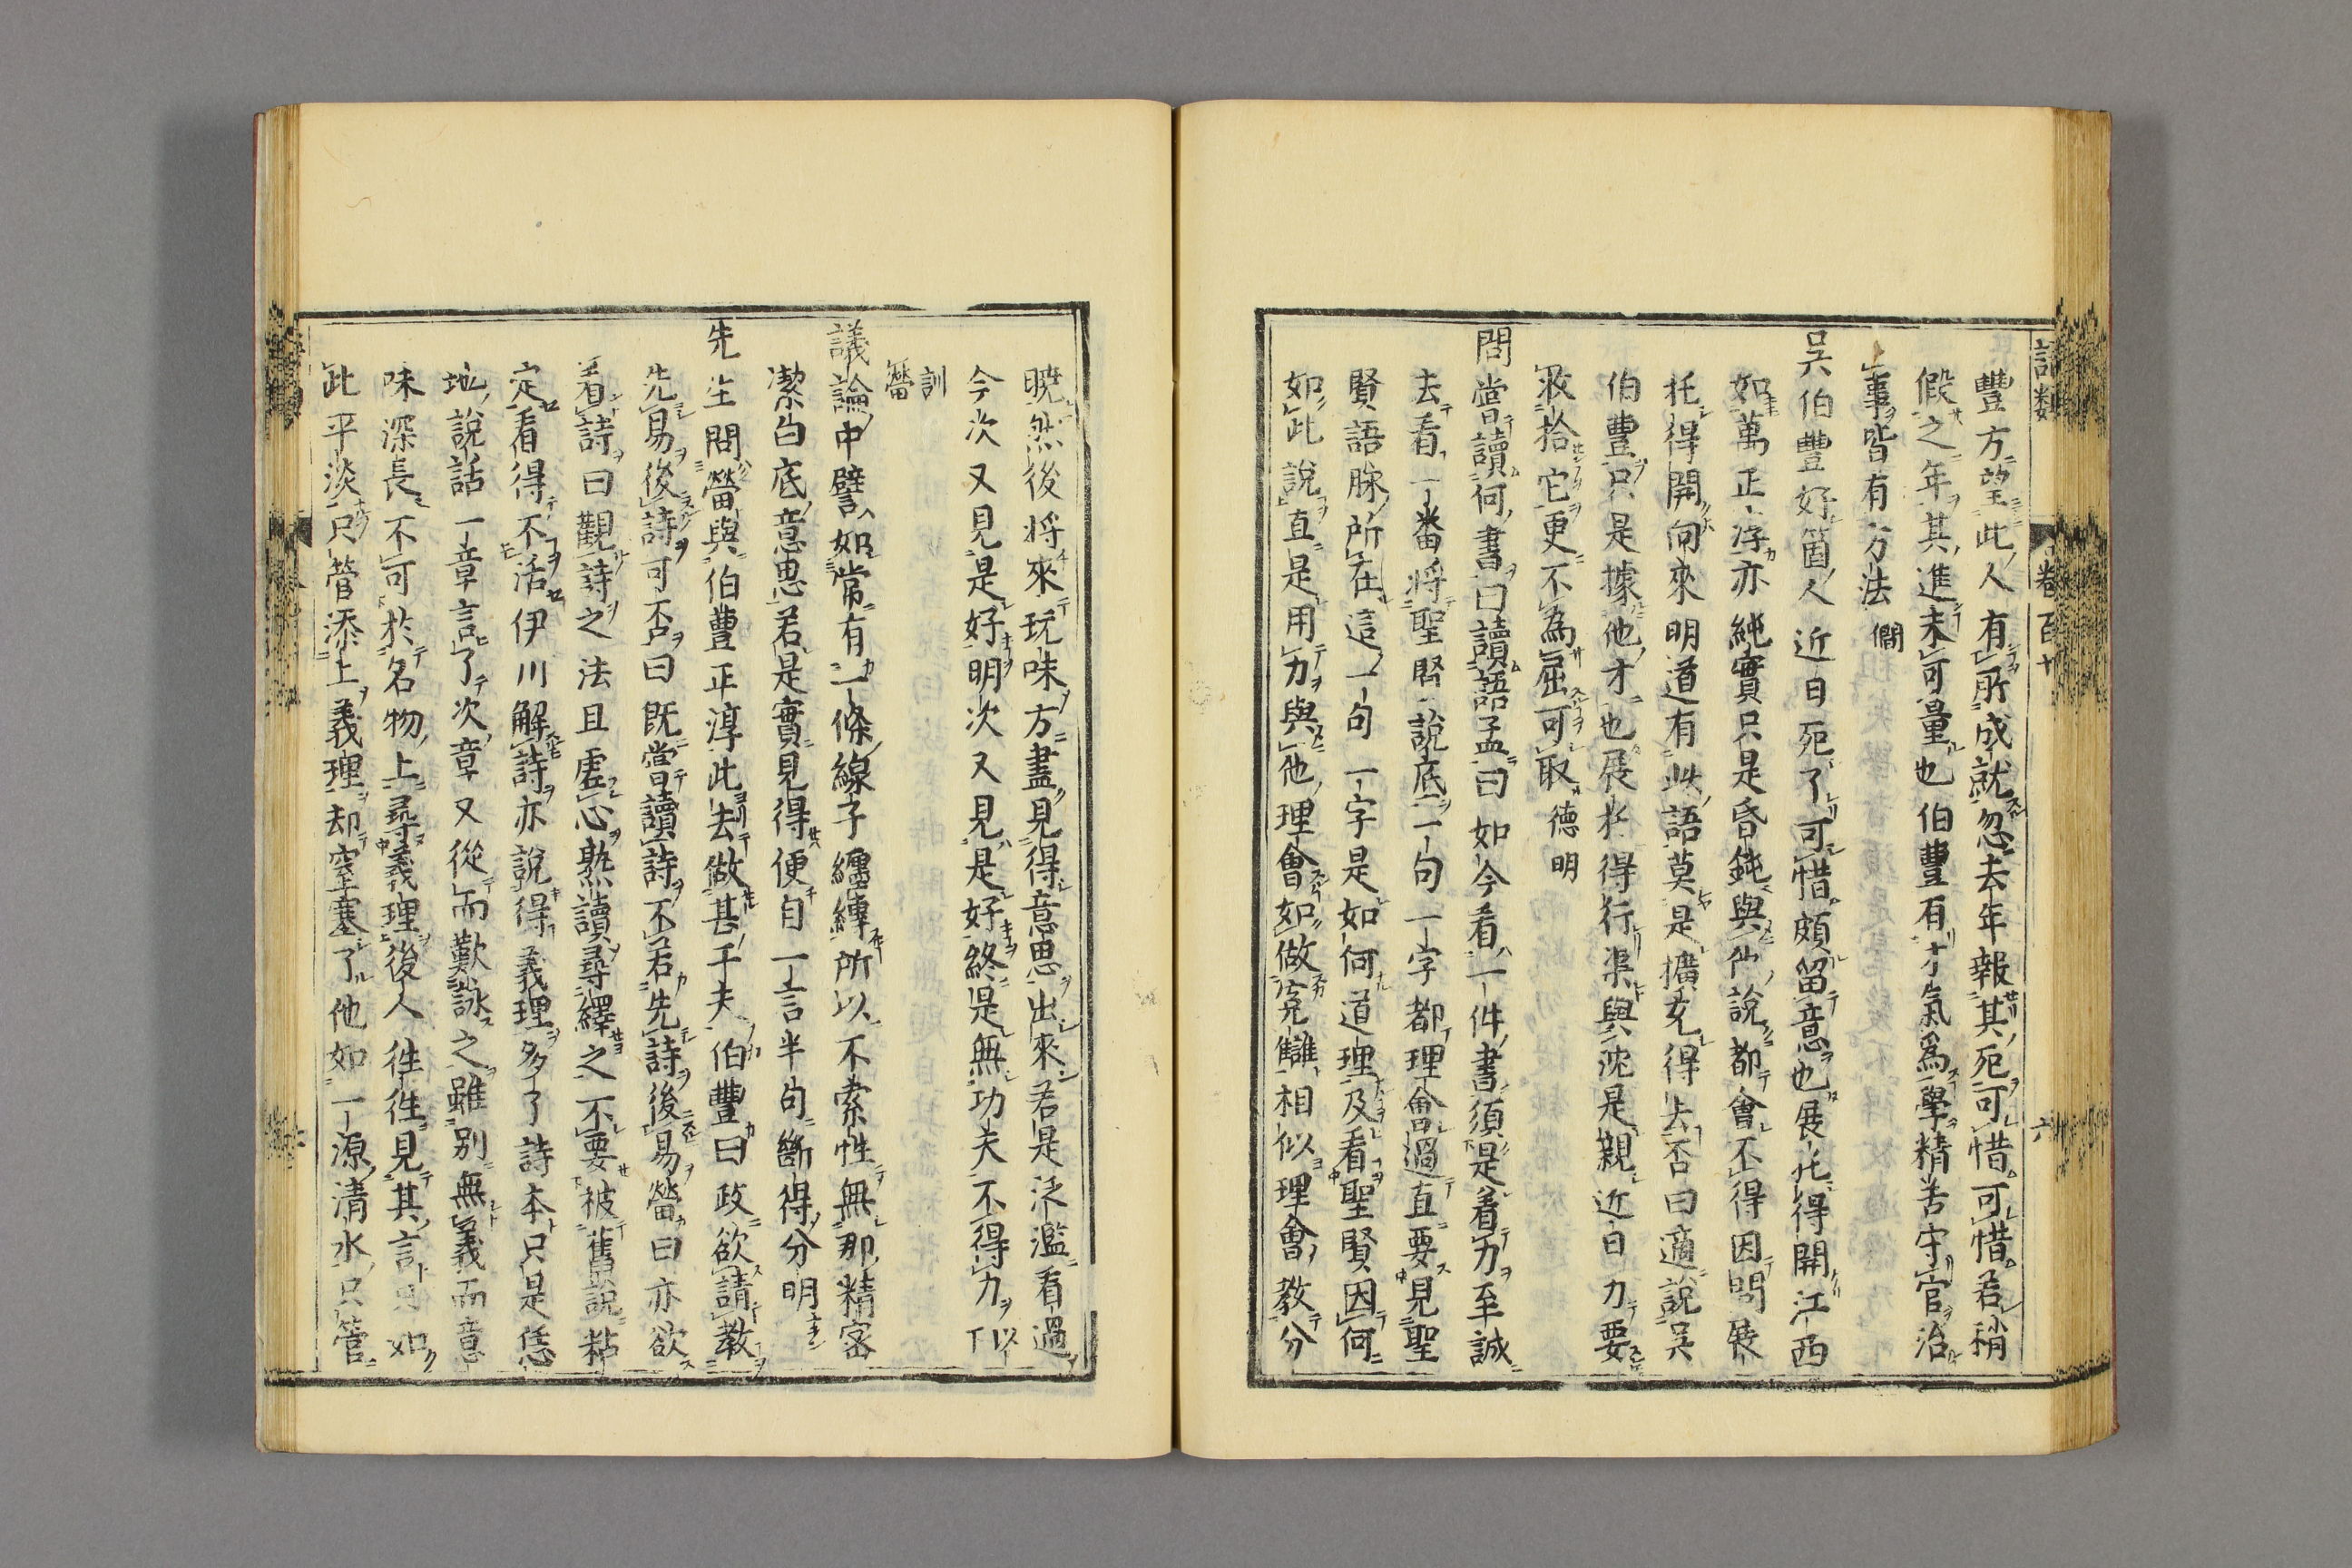 語類　卷百十　六
豐方望此人有所成就忽去年報其死可惜可惜若稍
假之年其進未可量也伯豐有才氣為學精苦守官治
事皆有方法　僩
吳伯豐好箇人近日死了可惜頗留意也展托得開江西
如萬正淳亦純實只是昏鈍與他說都會不得因問展
托得開向來明道有此語莫是擴充得去否曰適說吳
伯豐只是據他才也展托得行渠與沈是親近日力要
收拾它更不為屈可取　德明
問嘗讀何書曰讀語孟曰如今看一件書須是着力至誠
去看一番將聖賢說底一句一字都理會過直要見聖
賢語脉所在這一句一字是如何道理及看聖賢因何
如此說直是用力與他理會如做冤讎相似理會教分
曉然後將來玩味方盡見得意思出來若是泛濫看過
今次又見是好明次又見是好終是無功夫不得力　以下
訓㽦
議論中譬如常有一條線子纏縳所以不索性無那精密
潔白底意思若是實見得便自一言半句斷得分明
先生問㽦與伯豐正淳此去做甚工夫伯豐曰政欲請教
先易後詩可否曰既嘗讀詩不若先詩後易㽦曰亦欲
看詩曰觀詩之法且虛心熟讀尋繹之不要被舊說粘
定看得不活伊川解詩亦說得義理多了詩本只是恁
地說話一章言了次章又從而歎詠之雖別無義而意
味深長不可於名物上尋義理後人往往見其言只如
此平淡只管添上義理却窒塞了他如一源清水只管